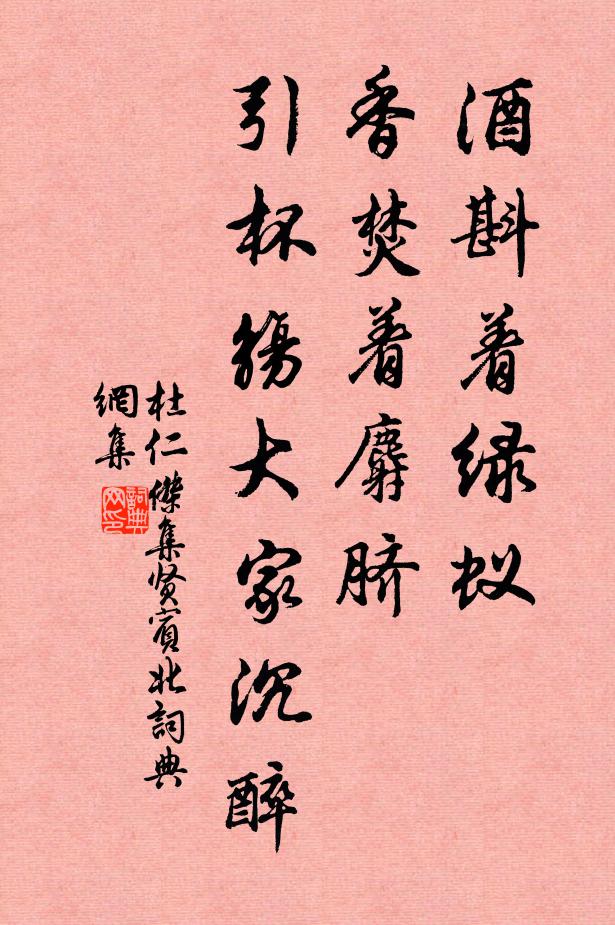 酒斟着绿蚁
香焚着麝脐
引杯觞大家沉醉
杜仁傑集贤賓北詞典
網集
詞典网印